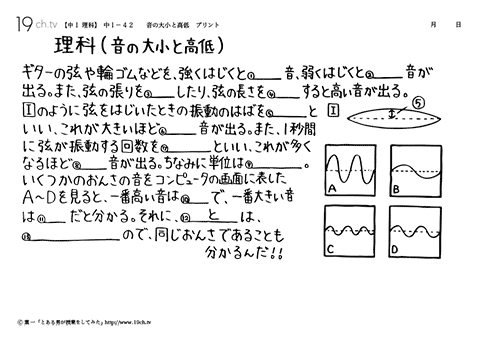 19 ch.tv 【中1 理科】 中1-42 音の大小と高低 プリント 月 日
理科(音の大小と高低)
ギターの弦や輪ゴムなどを、強くはじくと① 音、弱くはじくと② 音が
出る。また、弦の張りを③ したり、弦の長さを④ すると高い音が出る。
Iのように弦をはじいたときの振動のはばを⑤ と
いい、これが大きいほど⑥ 音が出る。また、1秒間
に弦が振動する回数を⑦ といい、これが多く
なるほど⑧ 音が出る。ちなみに単位は⑨ 。
いくつかのおんさの音をコンピュータの画面に表した
A~Dを見ると、一番高い音は⑩ で、一番大きい音
は⑪ だと分かる。それに、⑫ と は、
⑬ ので、同じおんさであることも
分かるんだ!!
I
⑤
A
B
C
D
Ⓒ 葉一「とある男が授業をしてみた」http://www.19ch.tv